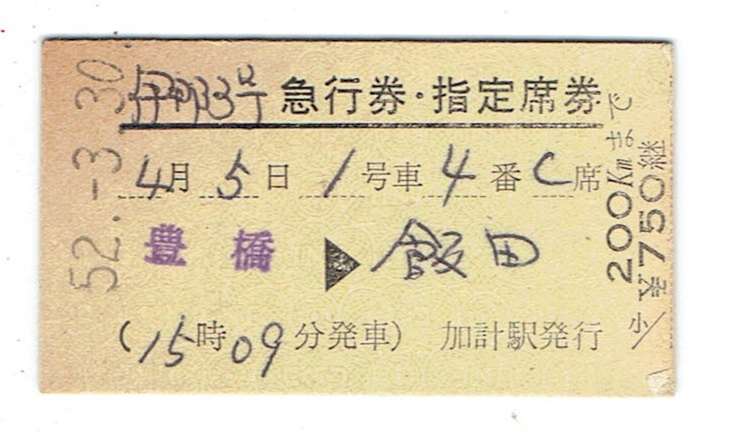 伊那3号 急行券・指定席券
4月5日 1号車 4番 C席
豊橋 ▶ 飯田
(15時09分発車) 加計駅発行
52.-3.30
200Kmまで
¥750継
小